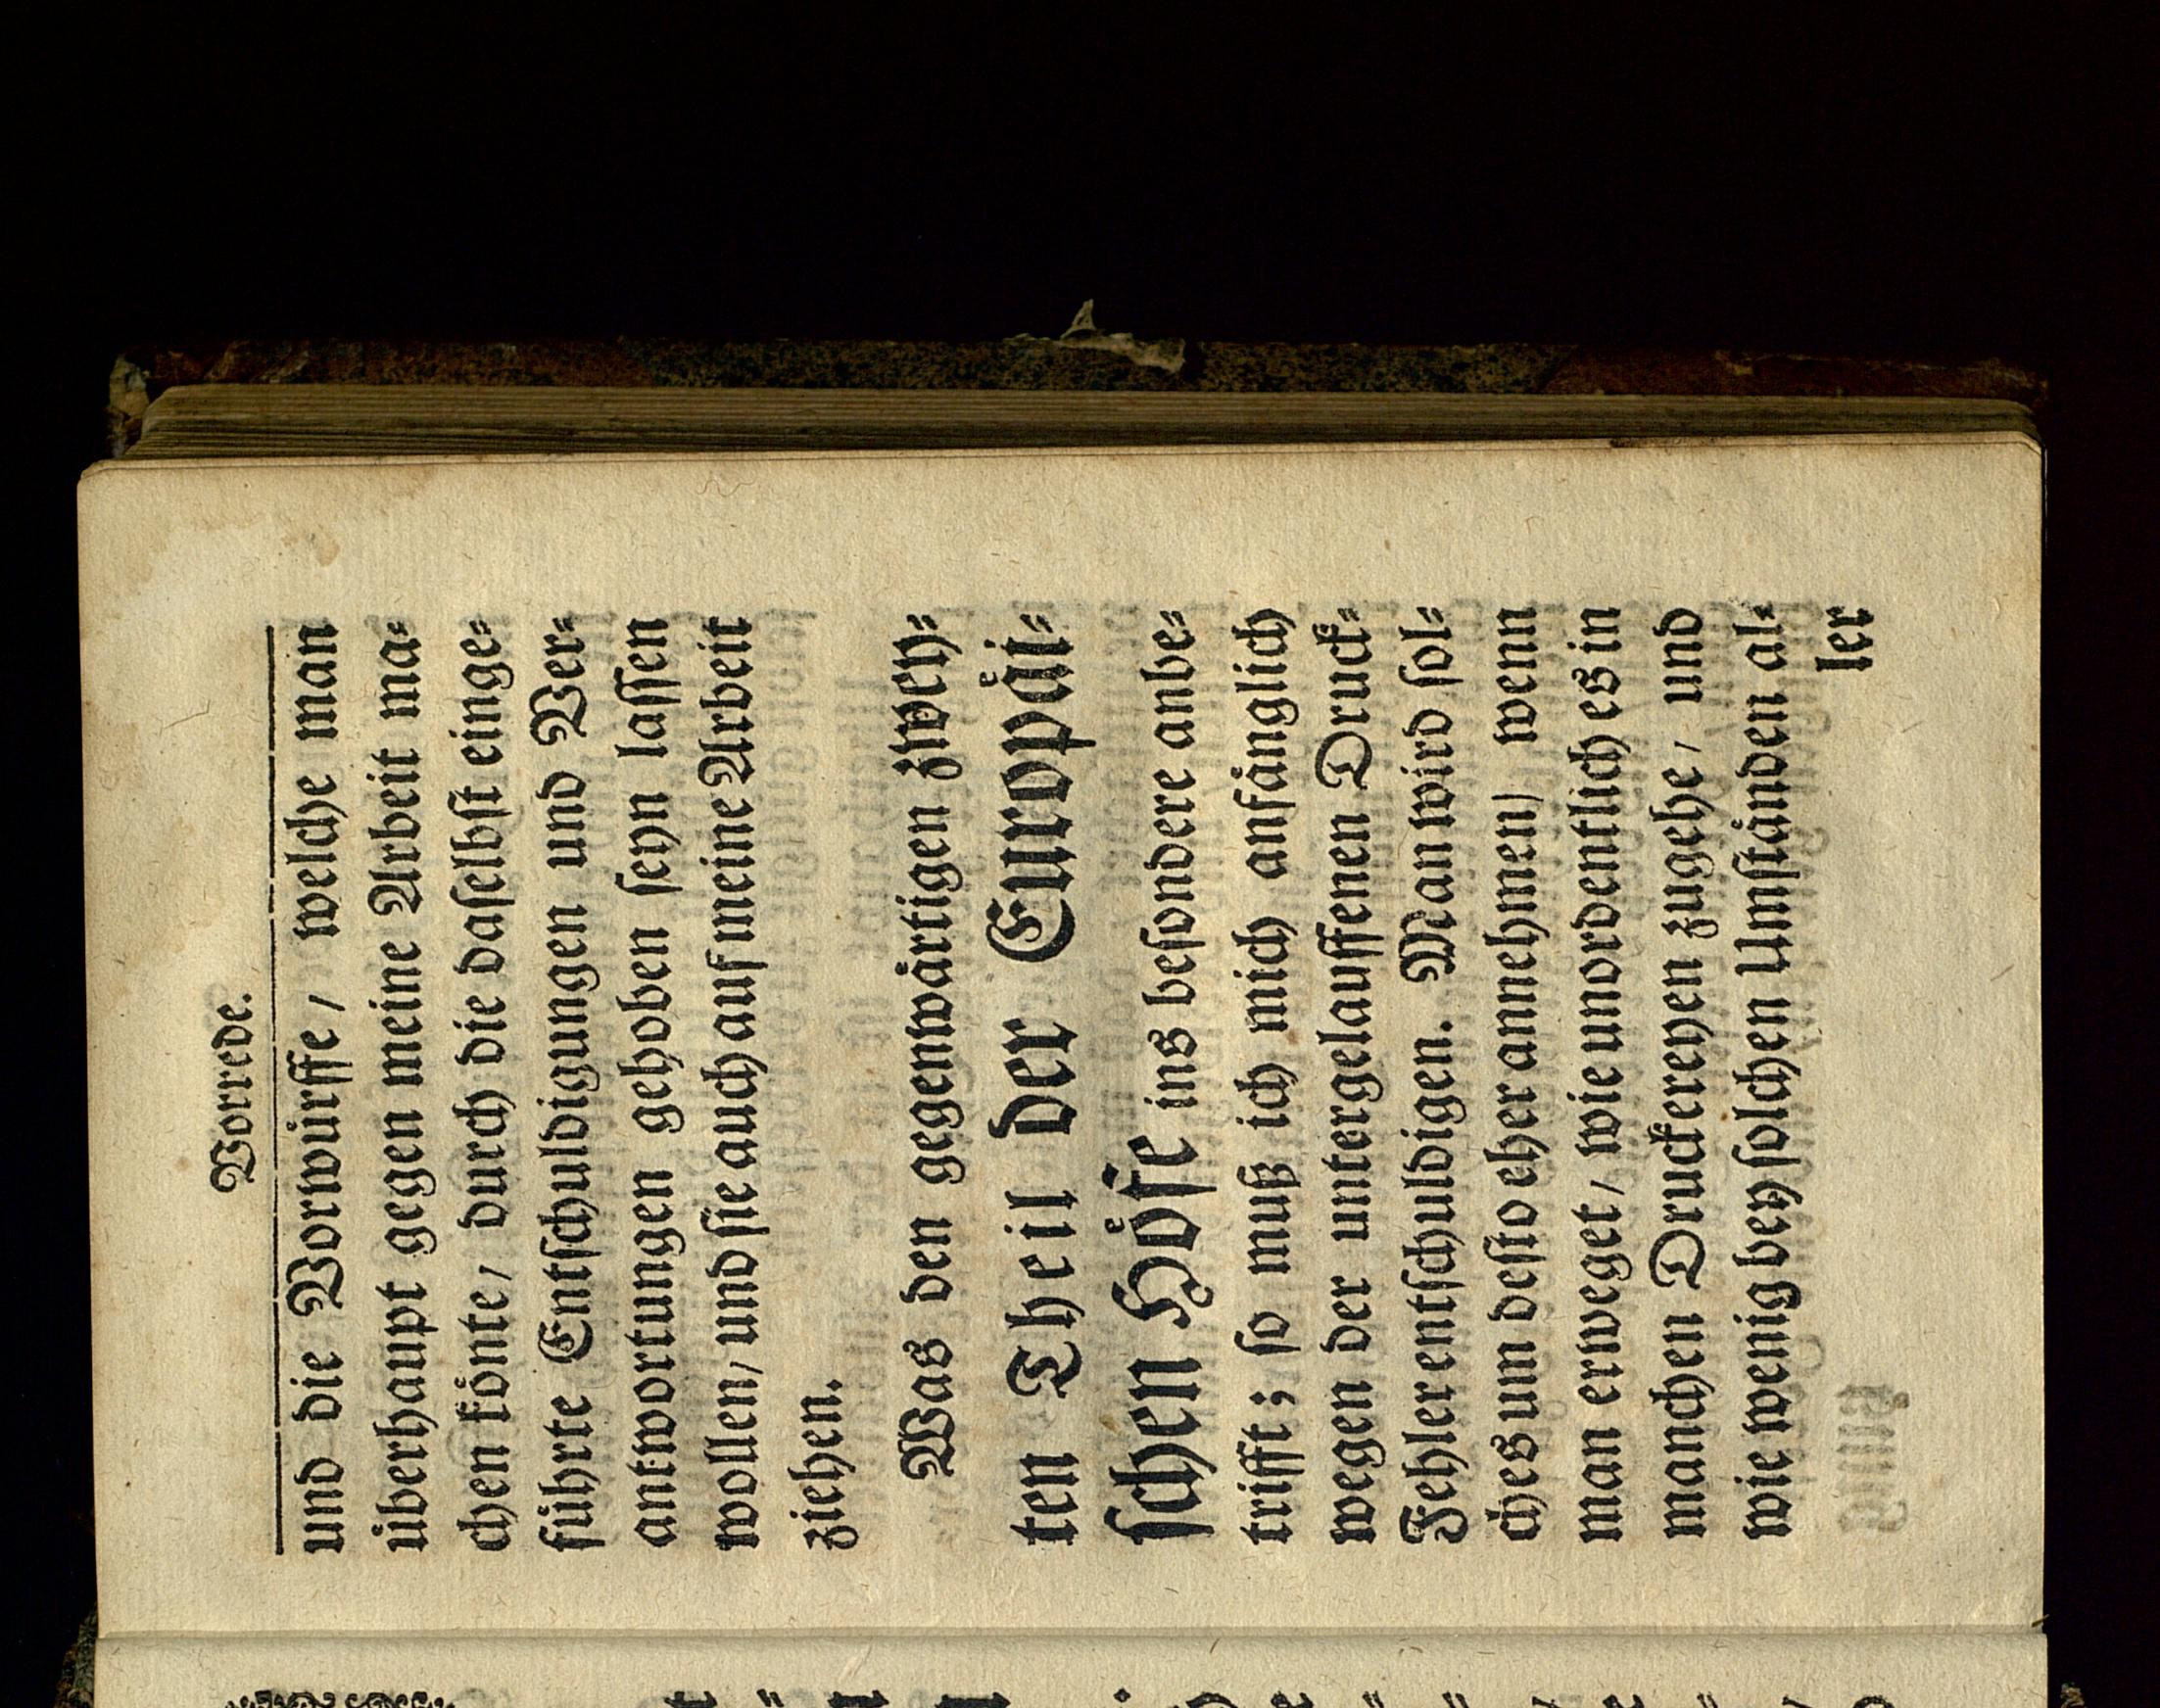 Vorrede.
und die Vorwürffe / welche man
überhaupt gegen meine Arbeit ma⸗
chen könte / durch die daselbst einge⸗
führte Entschuldigungen und Ver⸗
antwortungen gehoben seyn lassen
wollen / und sie auch auf meine Arbeit
ziehen.
Was den gegenwärtigen zwey⸗
ten Theil der Europäi⸗
schen Höfe ins besondere anbe⸗
trifft ; so muß ich mich anfänglich
wegen der untergelauffenen Druck⸗
Fehler entschuldigen. Man wird sol⸗
ches um desto eher annehmen / wenn
man erweget / wie unordentlich es in
manchen Druckereyen zugehe / und
wie wenig bey solchen Umständen al⸗
ler